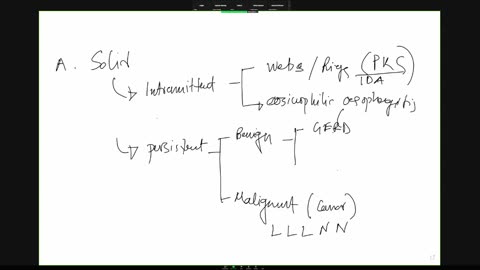 A. Solid
Intramittent
webs / Rings (PKS)
IDA
eosinophilic oesophagitis
persistent
Benign
GERD
Malignant (Cancer)
L L L N N